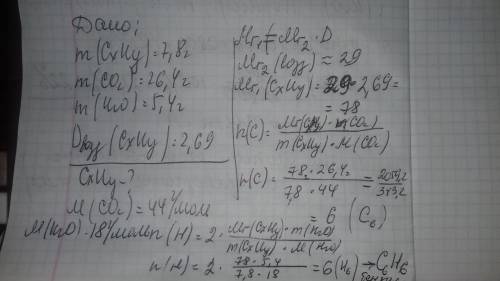 Дано:
m(CxHy)=7,8г
m(CO₂)=26,4г
m(H₂O)=5,4г
Dвозд(CxHy)=2,69
CxHy-?
M(CO₂)=44г/моль
M(H₂O)=18г/моль
Mr₁=Mr₂·D
Mr₂(возд)=29
Mr₁(CxHy)=29·2,69=
=78
n(C)=Mr(CxHy)·m(CO₂)/m(CxHy)·M(CO₂)
n(C)=78·26,4г/7,8·44=
=6 (C₆)
n(H)=2·Mr(CxHy)·m(H₂O)/m(CxHy)·M(H₂O)
n(H)=2·78·5,4/7,8·18=6(H₆)→C₆H₆
бензол